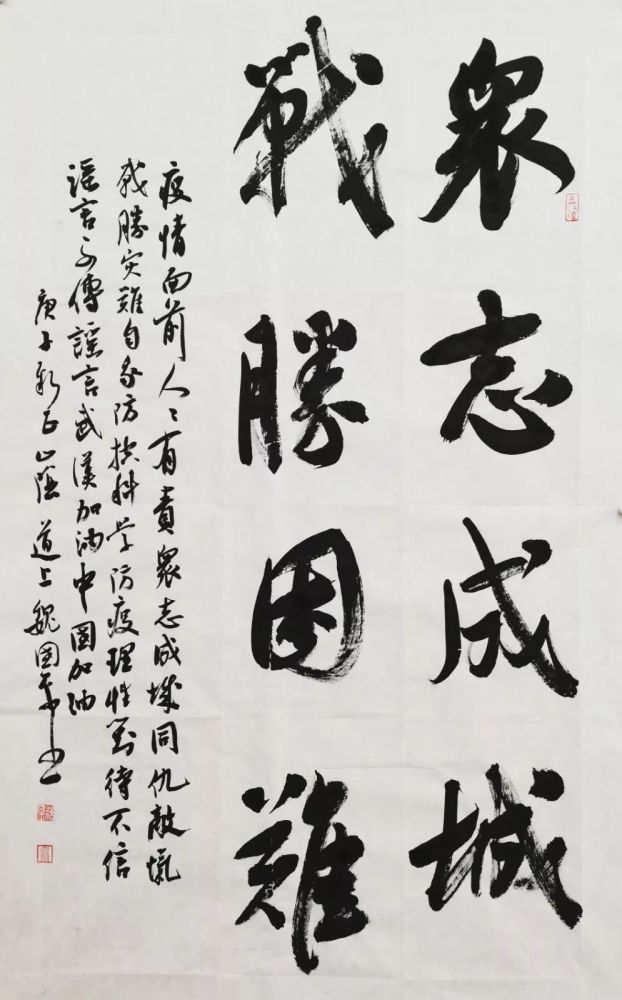 眾志成城
戰勝困難
疫情面前人々有責眾志成城同仇敵愾
戰勝灾難自我防控科学防疫理性對待不信
謠言不傳謠言武漢加油中国加油
庚子新正山陰道上魏国平书